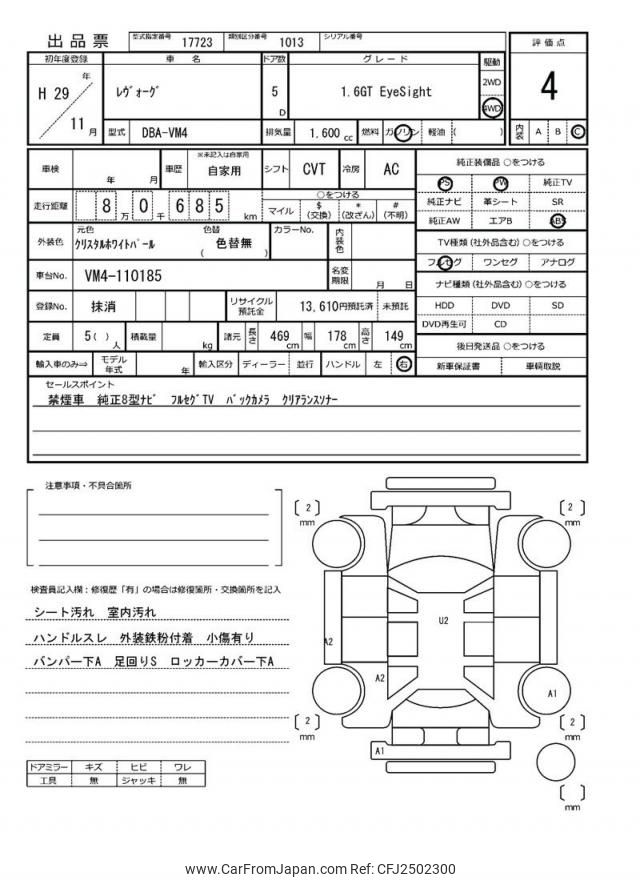 出品票 型式指定番号 17723 類別区分番号 1013 シリアル番号
初年度登録 車名 ドア数 グレード 駆動 評価点
H 29 年 11 月 レヴォーグ 5 D 1.6GT EyeSight 2WD 4WD 4
型式 DBA-VM4 排気量 1.600 cc 燃料 ガソリン 軽油 ( ) 内装 A B C
車検 年 月 車歴 ※未記入は自家用 自家用 シフト CVT 冷房 AC 純正装備品 ○をつける
PS PW 純正TV
走行距離 8 万 0 千 6 8 5 km ○をつける マイル $ (交換) * (改ざん) # (不明) 純正ナビ 革シート SR
純正AW エアB ABS
外装色 元色 クリスタルホワイトパール 色替 ( 色替無 ) カラーNo. 内装色 TV種類 (社外品含む) ○をつける
フルセグ ワンセグ アナログ
車台No. VM4-110185 名変期限 月 日 ナビ種類 (社外品含む) ○をつける
登録No. 抹消 リサイクル預託金 13,610円預託済 未預託 HDD DVD SD
DVD再生可 CD
定員 5 ( ) 人 積載量 kg 諸元 長さ 469 cm 幅 178 cm 高さ 149 cm 後日発送品 ○をつける
輸入車のみ⇒ モデル年式 年 輸入区分 ディーラー 並行 ハンドル 左 右 新車保証書 車輌取説
セールスポイント
禁煙車 純正8型ナビ フルセグTV バックカメラ クリアランスソナー
注意事項・不具合箇所
検査員記入欄:修復歴「有」の場合は修復箇所・交換箇所を記入
シート汚れ 室内汚れ
ハンドルスレ 外装鉄粉付着 小傷有り
バンパー下A 足回りS ロッカーカバー下A
ドアミラー キズ ヒビ ワレ
工具 無 ジャッキ 無
[ 2 ] mm
[ 2 ] mm
U2
A2
A2
A1
[ 2 ] mm
[ 2 ] mm
A1
[ ] mm
www.CarFromJapan.com Ref: CFJ2502300